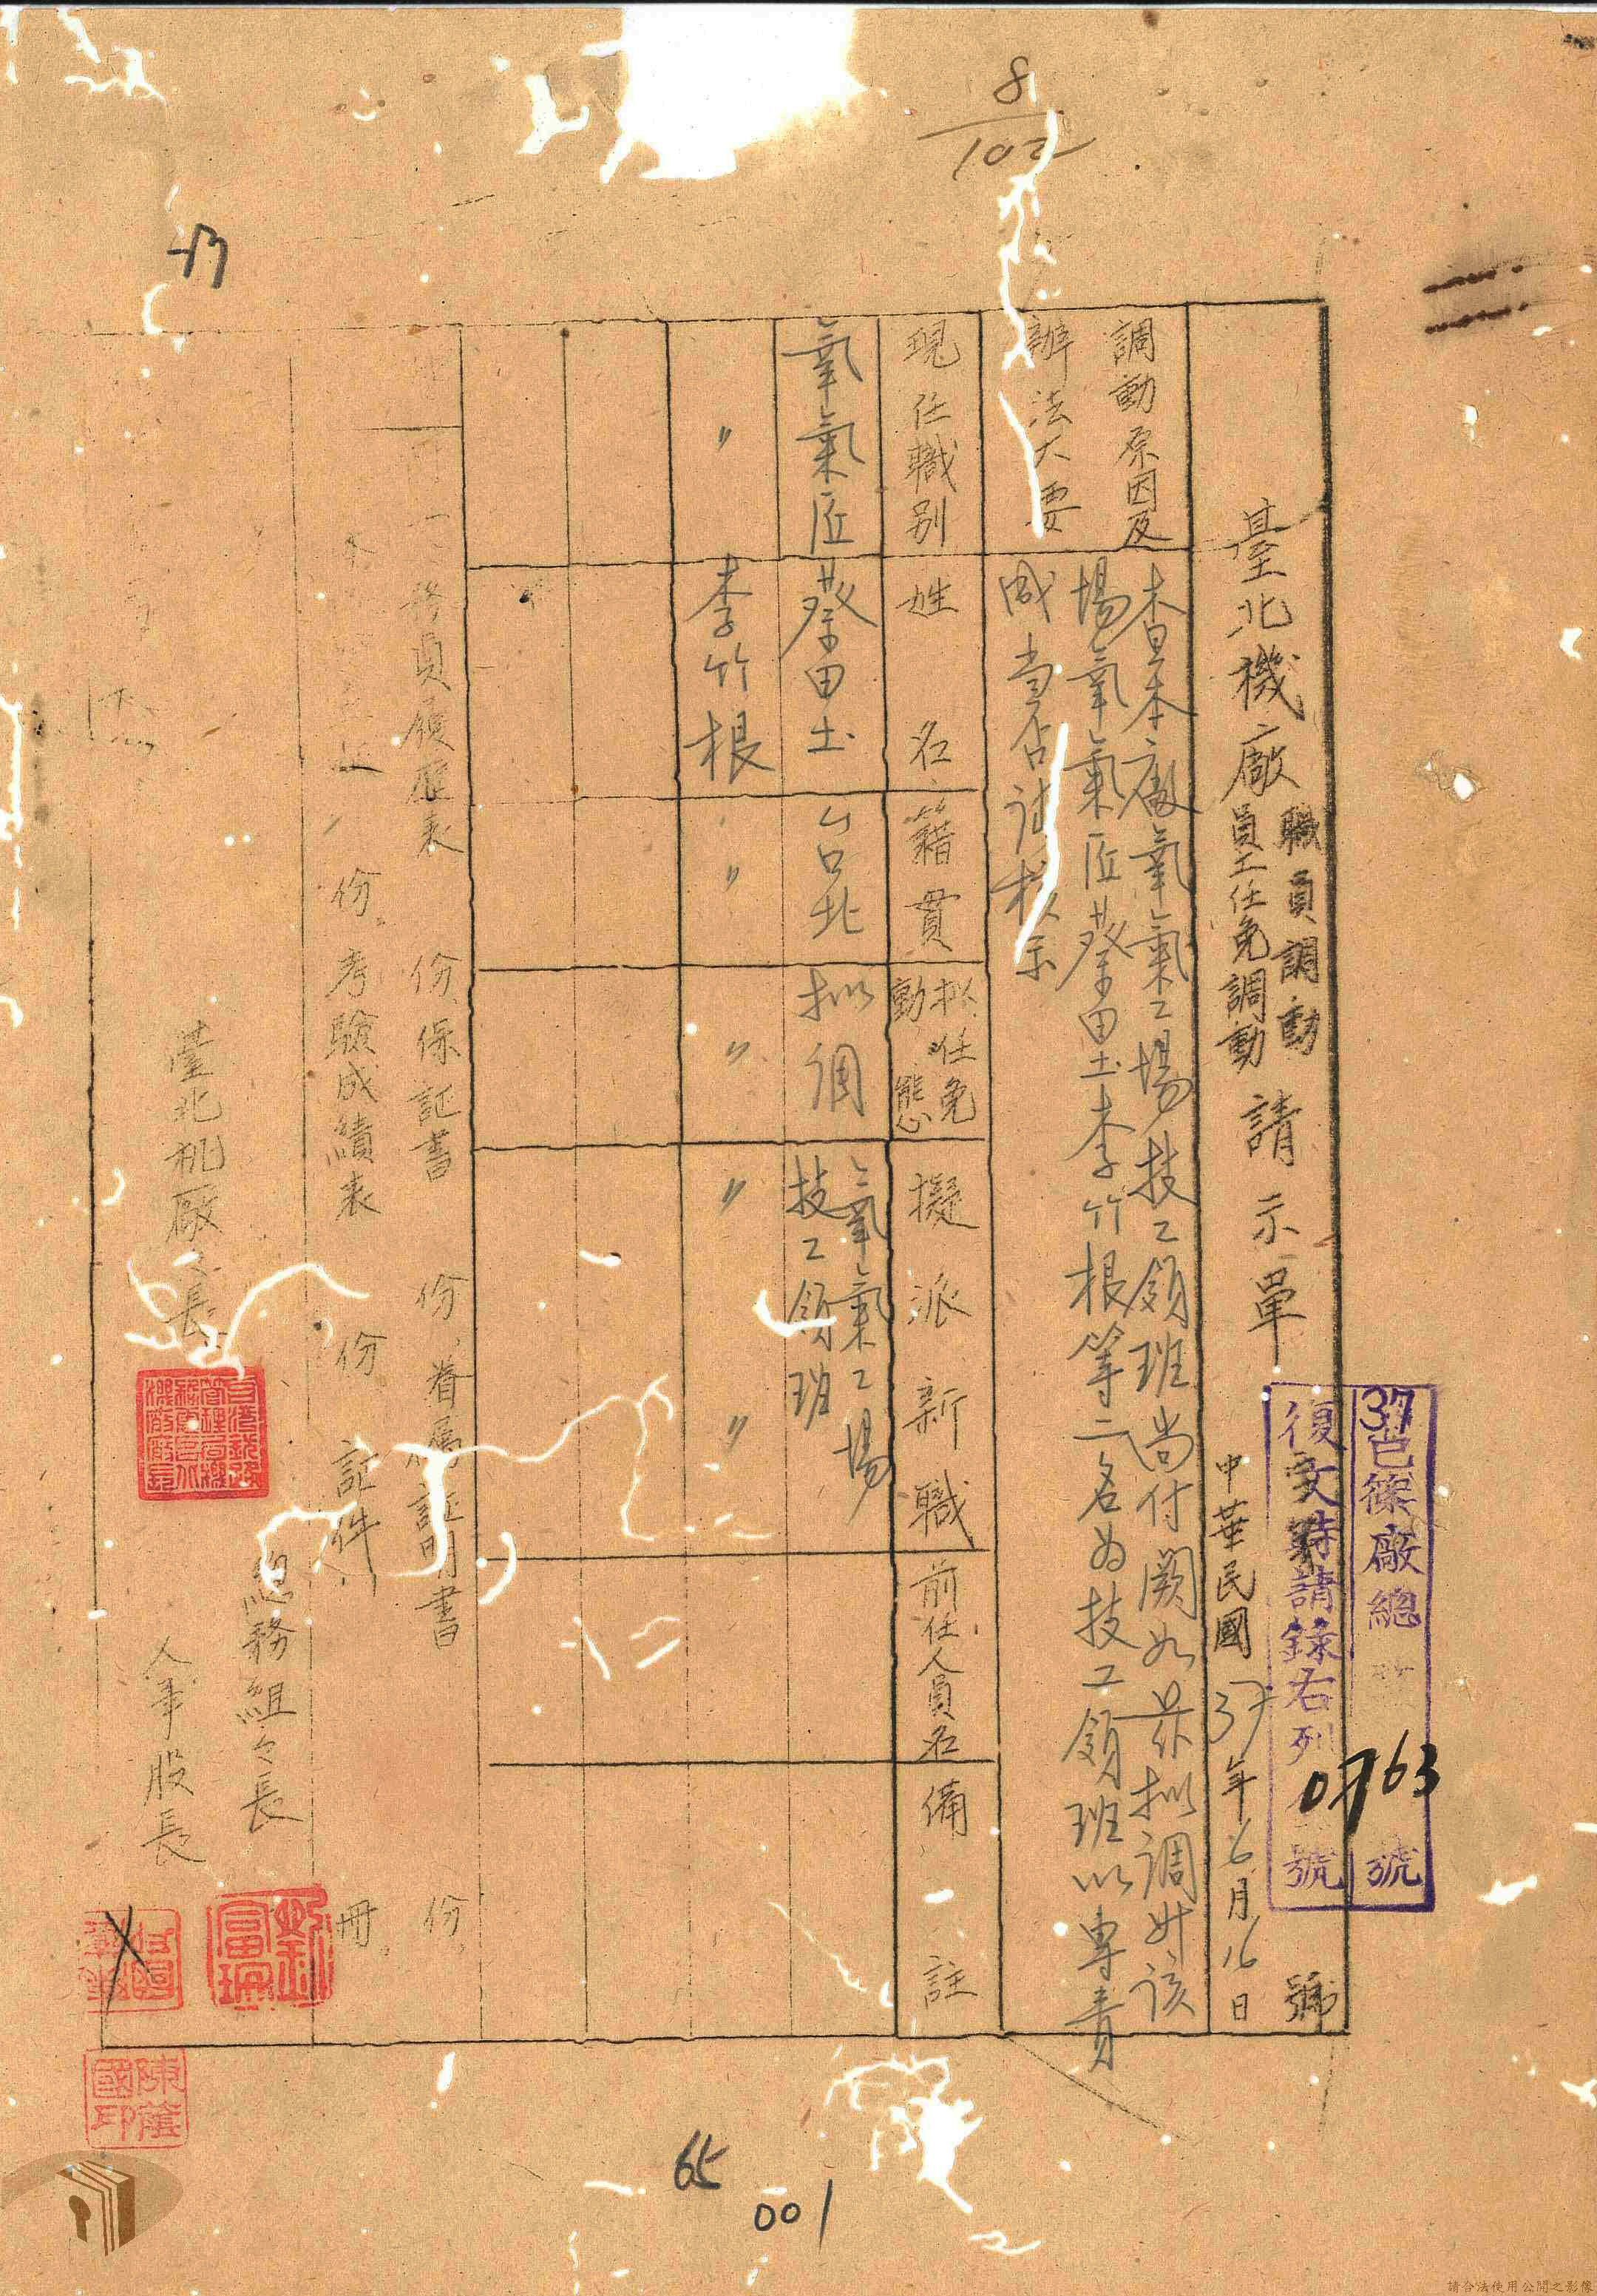 8/102
臺北機廠
職員調動
員工任免調動
請示單
號
中華民國37年6月16日
37
總
號
復文時請錄右列
號
0763
調動原因及
辦法大要
查本廠氧氣工場技工領班尚付闕如茲拟調升該
場氧氣匠蔡田土李竹根等二名為技工領班以專責
成當否請核示
現任職別
姓名
籍貫
拟任免
動態
擬派新職
前任人員名
備註
氧氣匠
蔡田土
台北
拟調
氧氣工場
技工領班
〃
李竹根
〃
〃
〃
〃
務員履歷表 份、保証書 份、眷屬証明書 份、
份。考驗成績表 份 証件 冊。
總務組々長
臺北機廠々長
人事股長
劉富琛
陳舊國印
65
001
請合法使用公開之影像